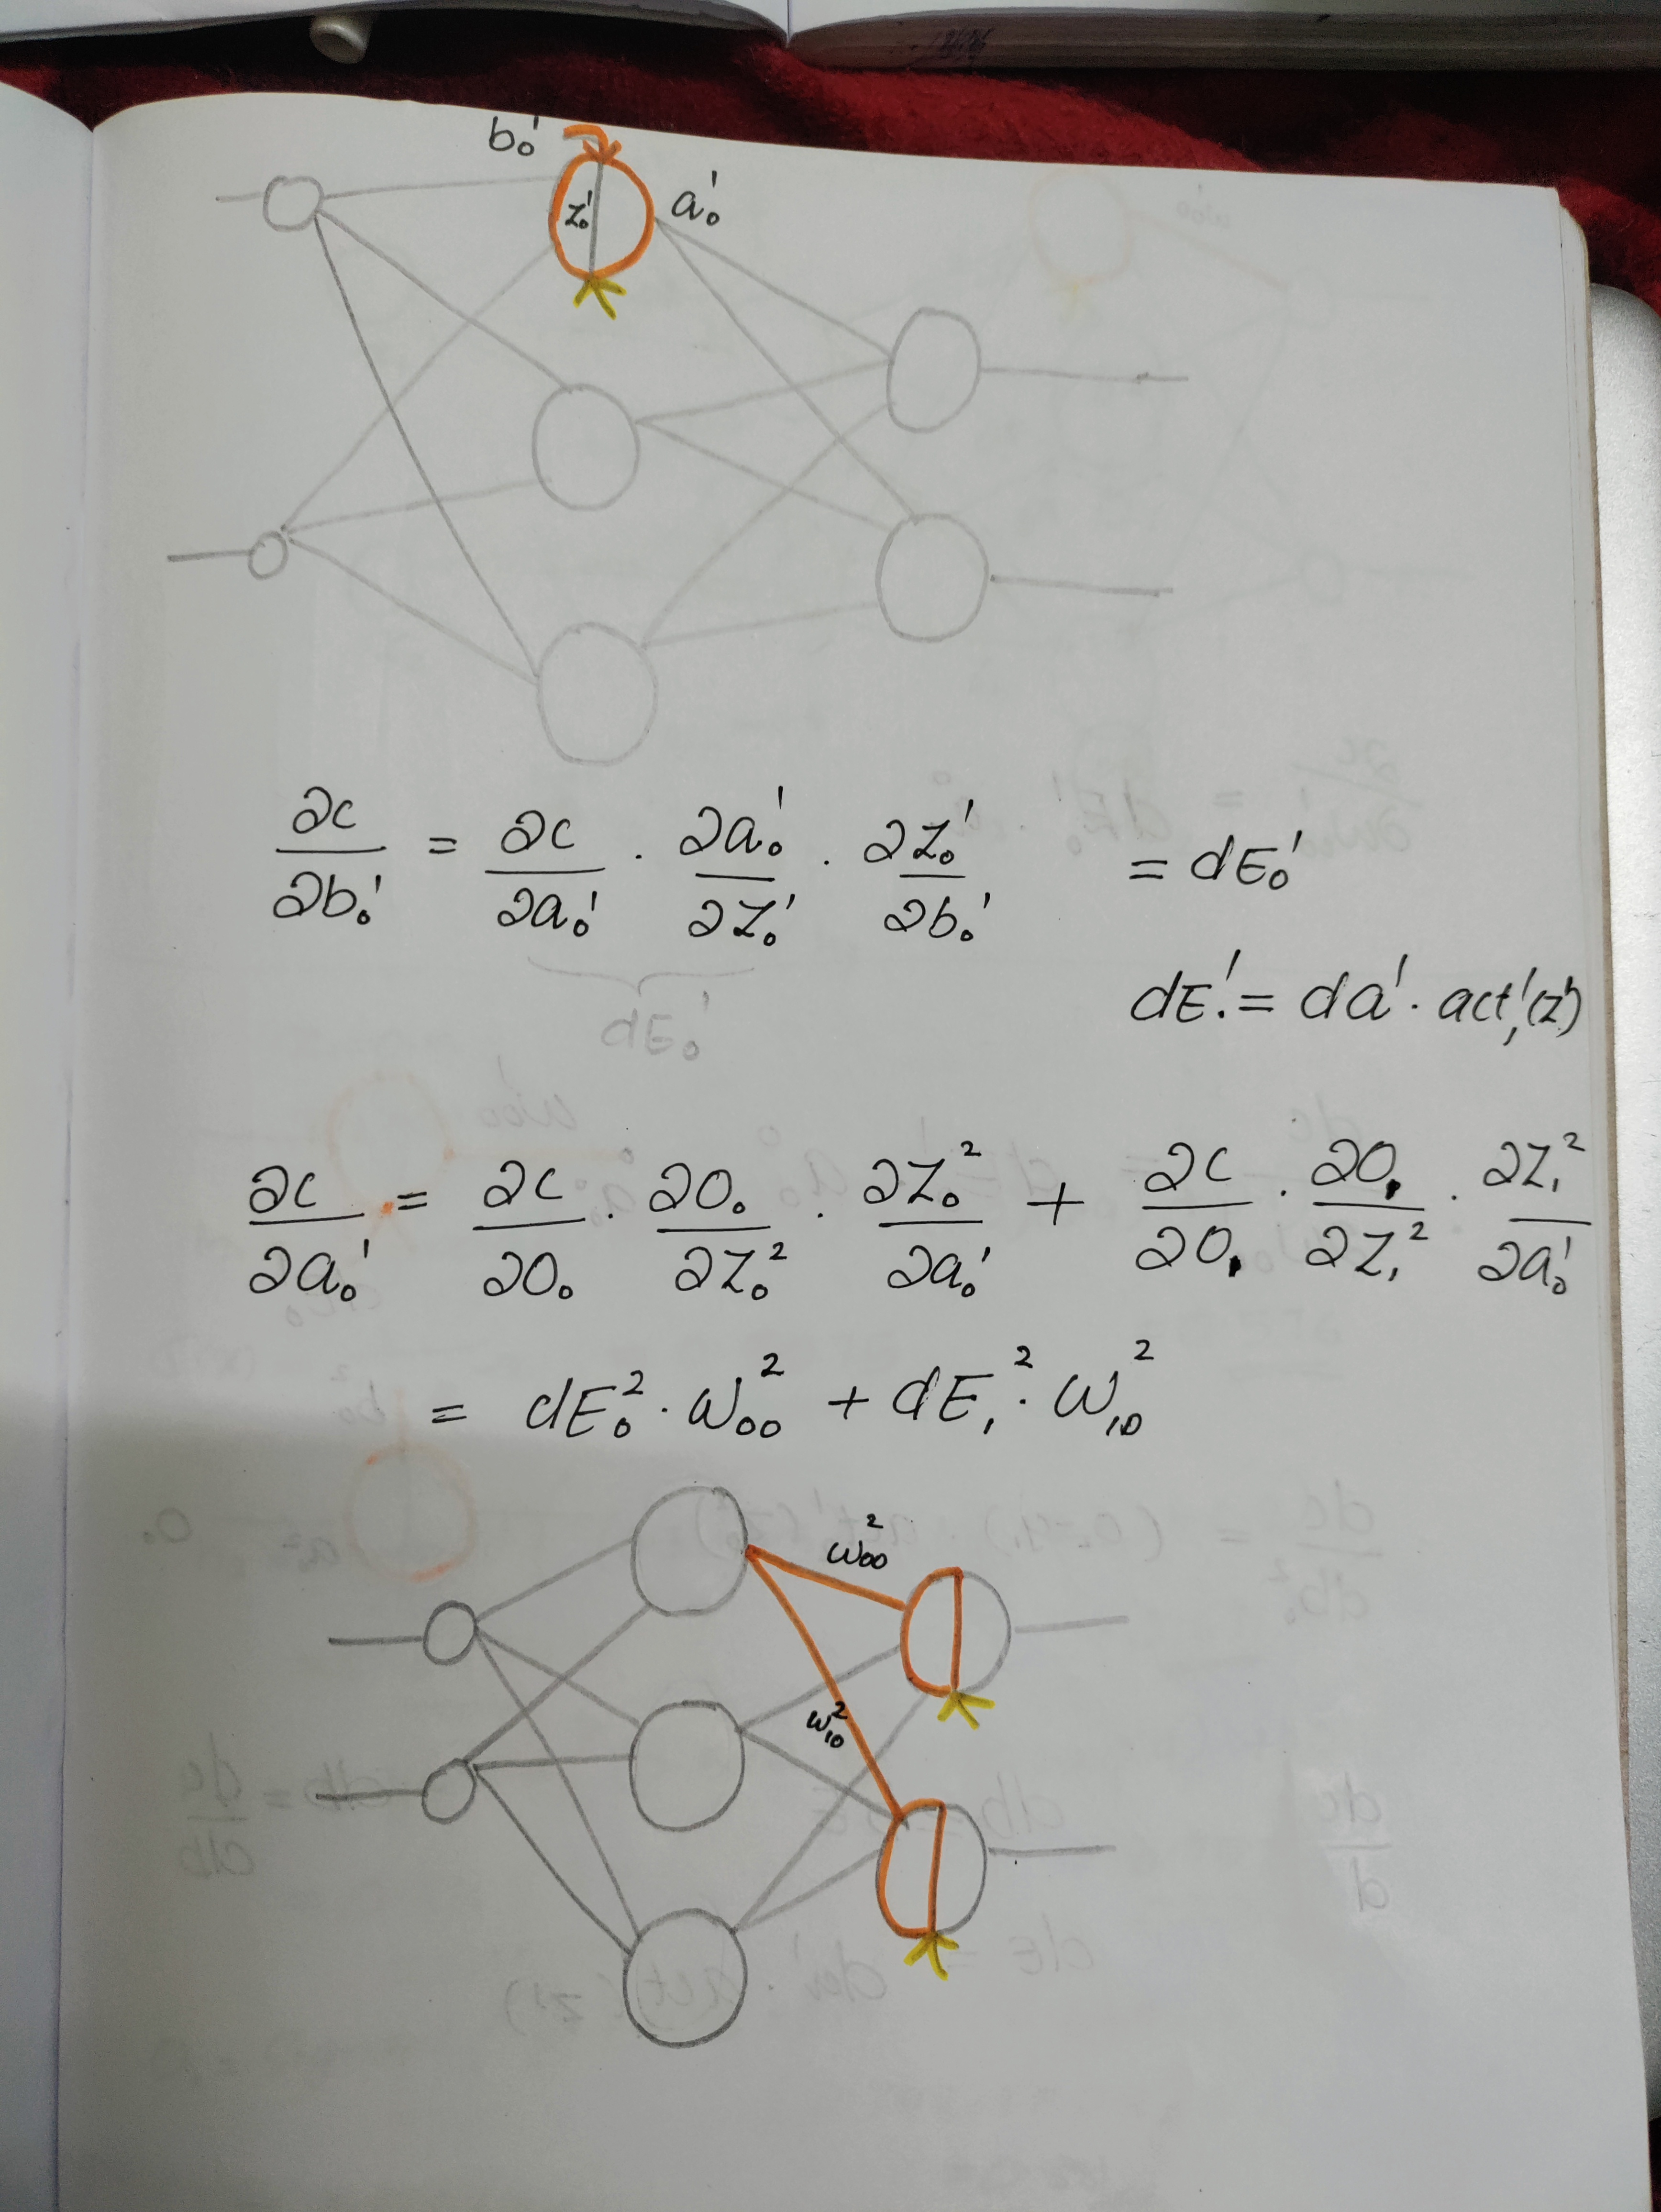 b₀¹
z₀¹ a₀¹
∂c/∂b₀¹ = ∂c/∂a₀¹ · ∂a₀¹/∂z₀¹ · ∂z₀¹/∂b₀¹ = dE₀¹
dE₀¹
dE¹ = da¹ · act₁'(z¹)
∂c/∂a₀¹ = ∂c/∂o₀ · ∂o₀/∂z₀² · ∂z₀²/∂a₀¹ + ∂c/∂o₁ · ∂o₁/∂z₁² · ∂z₁²/∂a₀¹
= dE₀² · w₀₀² + dE₁² · w₁₀²
w₀₀²
w₁₀²